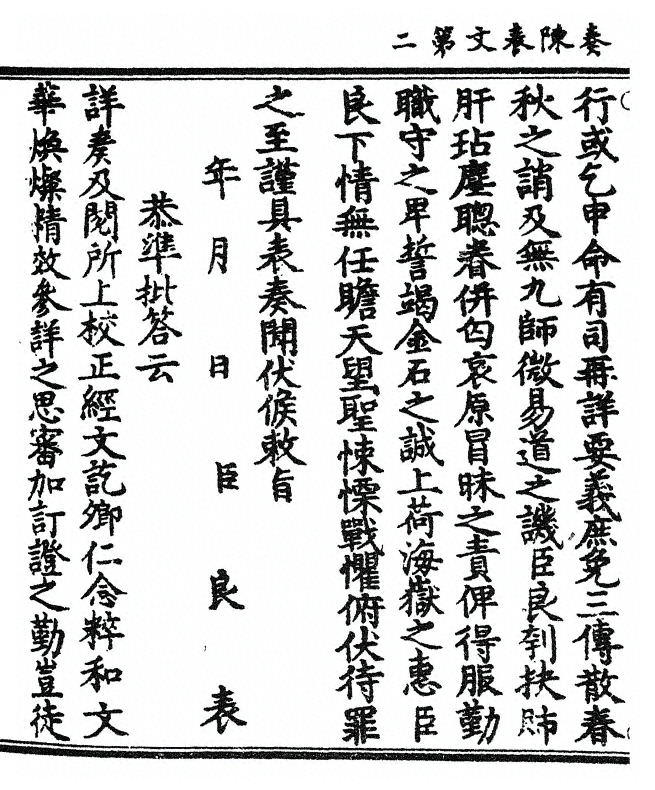 奏陳表文第二
行或乞申命有司再詳要義庶免三傳散春
秋之誚及無九師微易道之譏臣良刳抉肺
肝玷塵聰眷併匃哀原冒昧之責俾得服勤
職守之卑誓竭金石之誠上荷海嶽之惠臣
良下情無任瞻天望聖悚慄戰懼俯伏待罪
之至謹具表奏聞伏候敕旨
年月日臣良表
恭準批答云
詳奏及閱所上校正經文訖卿仁念粹和文
華煥燦精效參詳之思審加訂證之勤豈徒